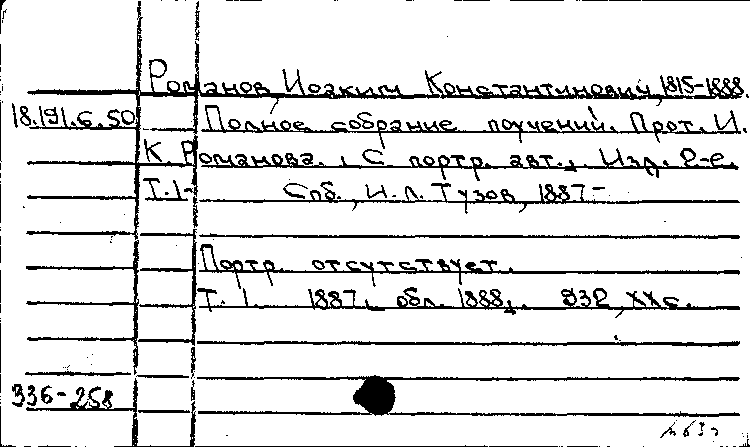 Романов, Иоаким Константинович, 1815-1888.
18.191.6.50 Полное собрание поучений. Прот. И.
К. Романова. [С портр. авт.]. Изд. 2-е.
Т. 1- Спб., И.Л. Тузов, 1887-
Портр. отсутствует.
Т. 1. 1887 [обл. 1888]. 932, XX с.
336-258